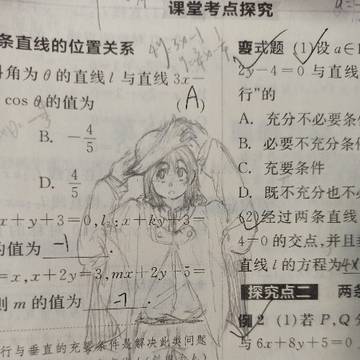 课堂考点探究
条直线的位置关系
4y=3x-1
斜角为θ的直线l与直线3x-
cos θ的值为 (A)
B. -4/5
D. 4/5
x+y+3=0,l₂:x+ky+3=
的值为 -1 .
=x,x+2y=3,mx+2y-5=
则m的值为 -7 .
行与垂直的充要条件是解决此类问题
变式题 (1)设a∈
2y-4=0与直线
行"的
A. 充分不必要条
B. 必要不充分条
C. 充要条件
D. 既不充分也不
(2)经过两条直线
4=0的交点,并且
直线l的方程为
探究点二 两条
例2 (1)若P,Q分
与6x+8y+5=0